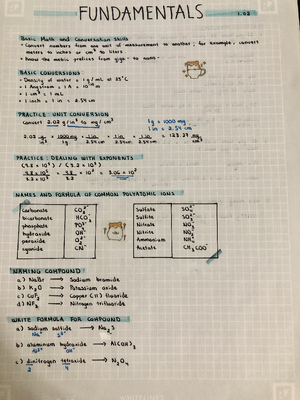 FUNDAMENTALS
1.02
Basic Math and Conversation Skills
- Convert numbers from one unit of measurement to another; for example, convert
meters to inches or cm³ to liters
- Know the metric prefixes from giga- to nano-
BASIC CONVERSIONS
- Density of water = 1g/mL at 25°C
- 1 Angstrom = 1 A = 10⁻¹⁰ m
- 1 cm³ = 1 mL
- 1 inch = 1 in = 2.54 cm
PRACTICE UNIT CONVERSION
Convert 2.02 g/in³ to mg/cm³
1g = 1000 mg
1 in = 2.54 cm
2.02 g/in³ × 1000 mg/1g × 1 in/2.54cm × 1 in/2.54cm × 1 in/2.54cm = 123.27 mg/cm³
PRACTICE: DEALING WITH EXPONENTS
NAMES AND FORMULA OF COMMON POLYATOMIC IONS
Carbonate CO₃²⁻
bicarbonate HCO₃⁻
phosphate PO₄³⁻
hydroxide OH⁻
peroxide O₂²⁻
cyanide CN⁻
Sulfate SO₄²⁻
Sulfite SO₃²⁻
Nitrate NO₃⁻
Nitrite NO₂⁻
Ammonium NH₄⁺
Acetate CH₃COO⁻
NAMING COMPOUND
a) NaBr → Sodium bromide
b) K₂O → Potassium oxide
c) CuF₂ → Copper (II) fluoride
d) NF₃ → Nitrogen trifluoride
WRITE FORMULA FOR COMPOUND
a) sodium sulfide → Na₂S
Na⁺ S²⁻
b) aluminum hydroxide → Al(OH)₃
Al³⁺ OH⁻
c) dinitrogen tetroxide → N₂O₄
2 4